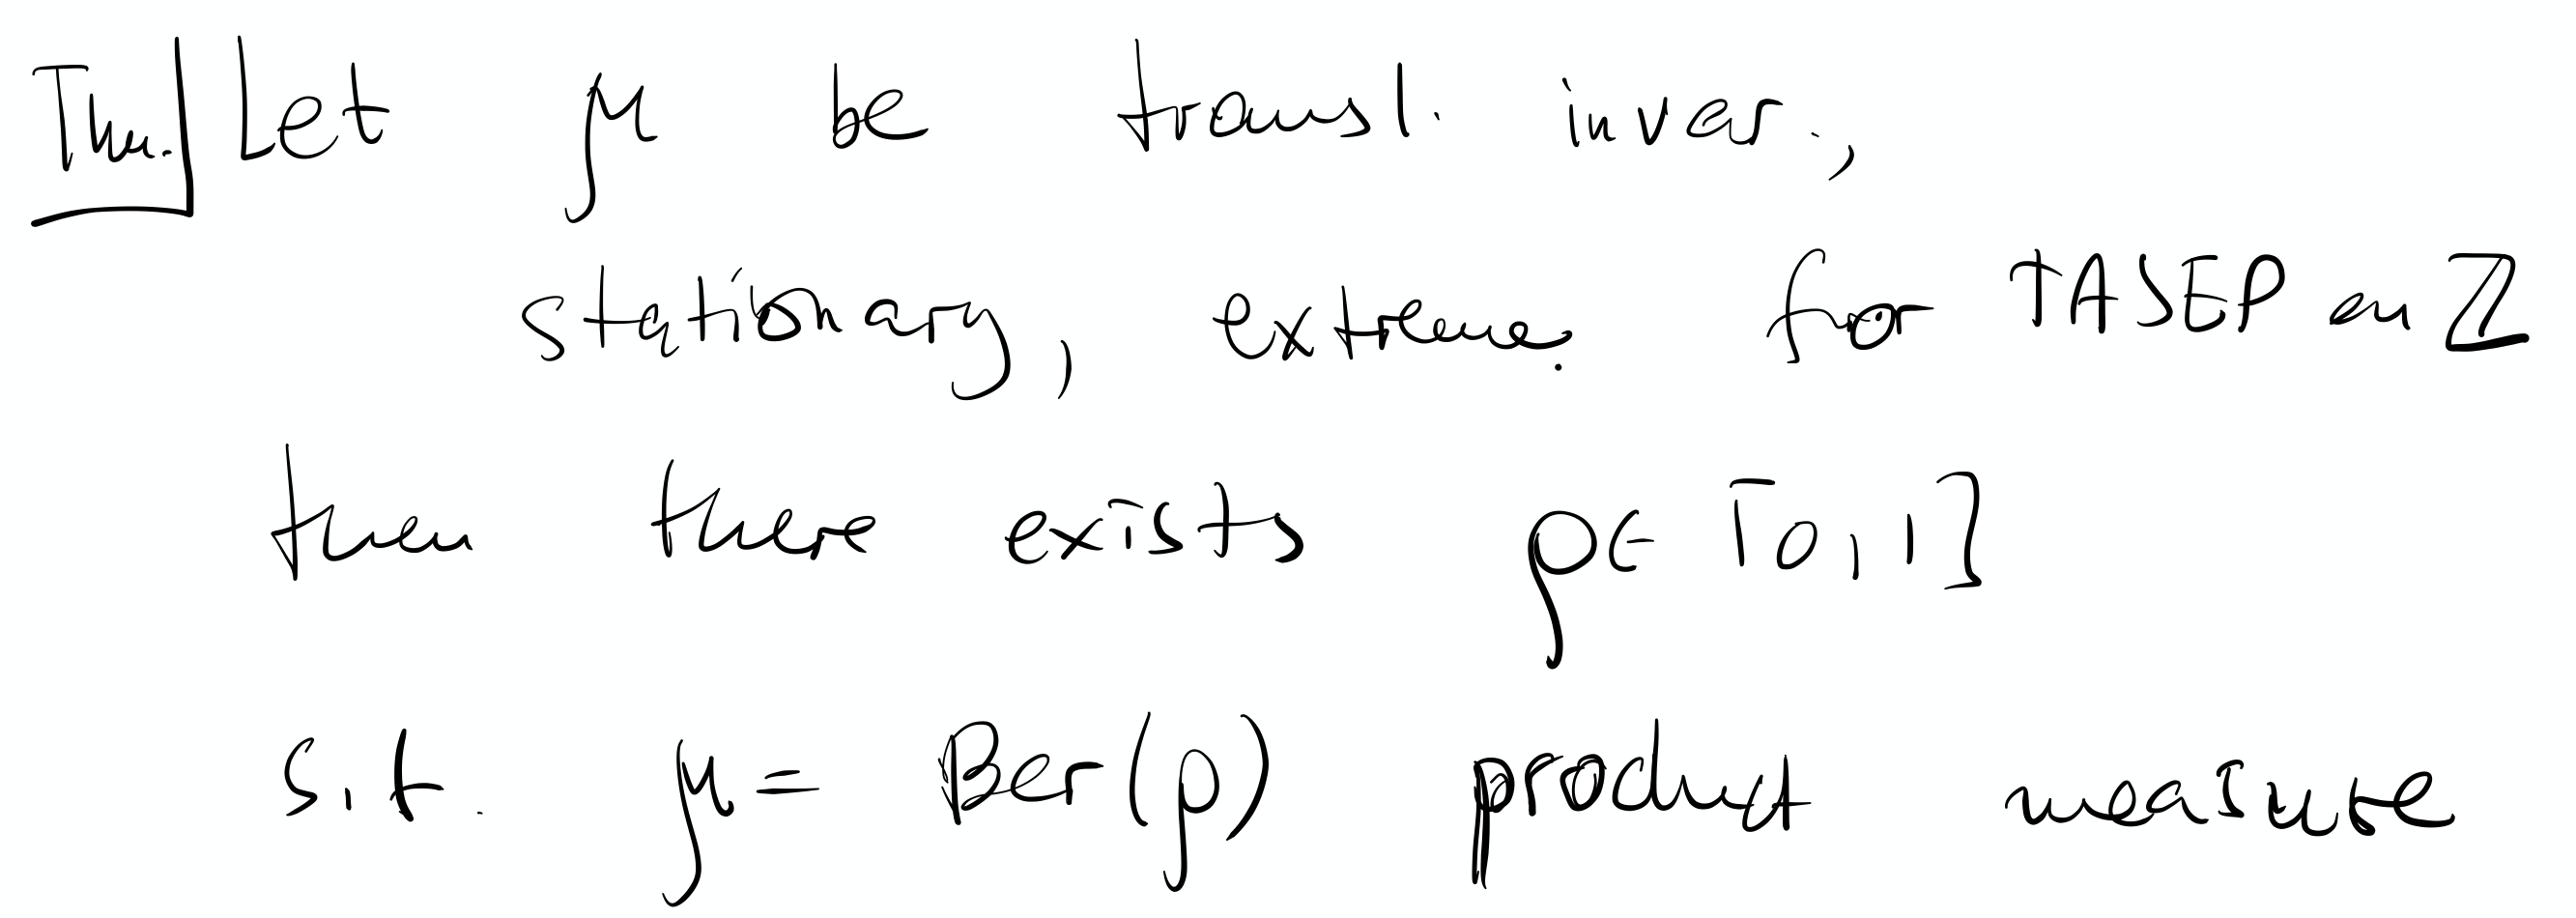 Thm. Let μ be transl. invar.,
stationary, extreme. for TASEP on ℤ
then there exists ρ∈ [0,1]
s.t. μ= Ber(ρ) product measure